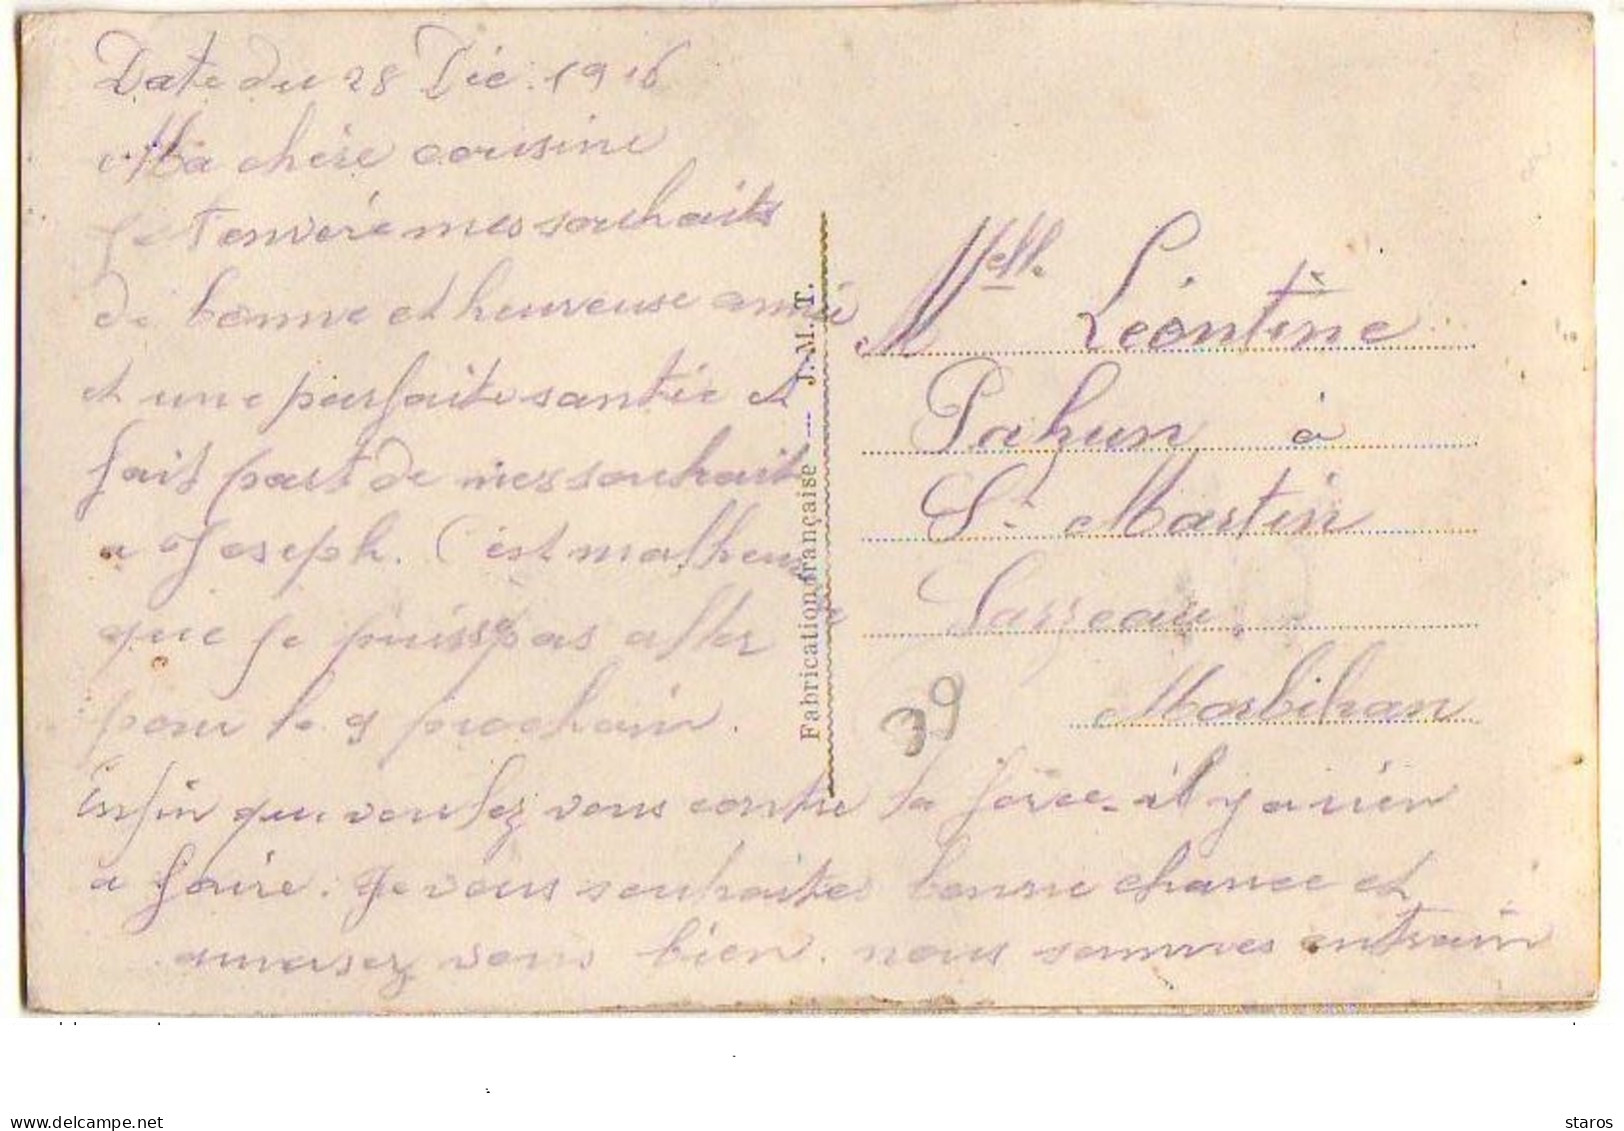 Date du 28 Déc. 1916
Ma chère cousine
je t'envoie mes souhaits
de bonne et heureuse anné
et une parfaite santée et
fait part de mes souhait
a Joseph. C'est malheureux
que je puisse pas aller
pour le 9 prochain.
Enfin que voulez vous contre la force. il y a rien
a faire. Je vous souhaite bonne chance et
amusez vous bien. nous sommes entrain
Fabrication française — J.-M. T.
Melle Léontine
Pahun à
St Martin
Sarzeau,
Morbihan
39
www.delcampe.net
staros